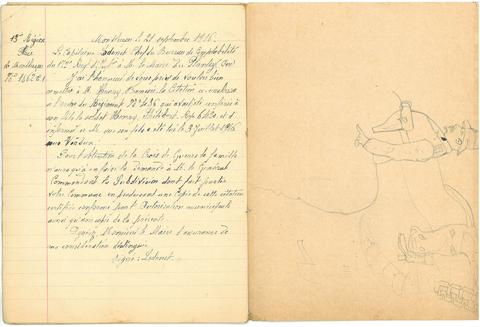 13e Région
Place
de Montluçon
No 1862 a
Montluçon le 21 septembre 1916.
Le Capitaine Ladonet Chef du Bureau de Comptabilité
du 121e Reg d'Inf à M. le Maire du
J'ai l'honneur de vous prier de vouloir bien
remettre à M. François, la Citation ci-incluse
à l'ordre du Régiment No 436 qui a été conférée à
son fils le soldat et d'
informer ce M. que son fils a été tué le 3 Juillet 1916
sous Verdun.
Pour l'obtention de la Croix de Guerre la famille
n'aura qu'à en faire la demande à M. le Général
Commandant la Subdivision dont fait partie
votre Commune en produisant une Copie de cette citation
certifiée conforme par l'Autorisation municipale
ainsi qu'une copie de la présente.
Agréez Monsieur le Maire l'assurance de
ma considération distinguée.
Signé : Ladonet